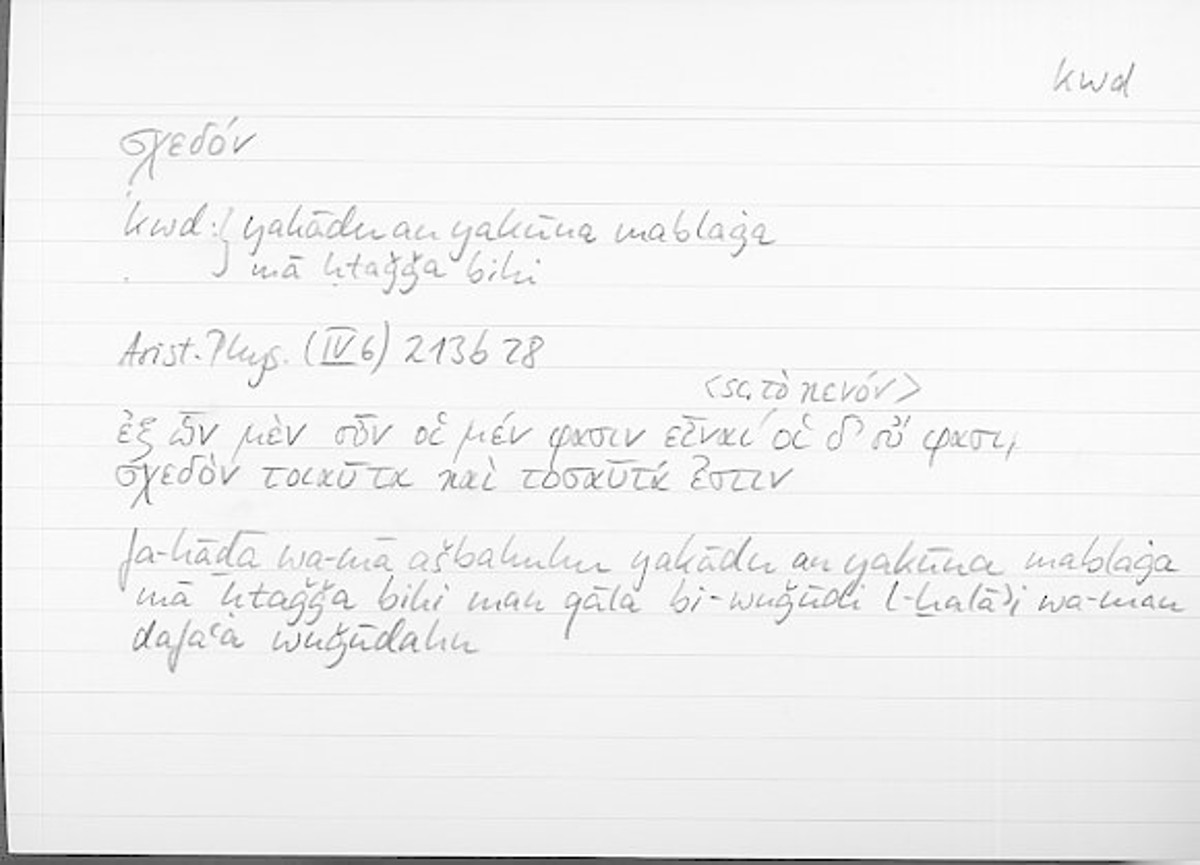 kwd
σχεδόν
kwd: yakādu an yakūna mablaġa
mā ḥtaǧǧa bihi
Arist. Phys. (IV 6) 213b28
<sc. τὸ κενόν>
ἐξ ὧν μὲν οὖν οἱ μέν φασιν εἶναι οἱ δ' οὔ φασι,
σχεδὸν τοιαῦτα καὶ τοσαῦτά ἐστιν
fa-hāḏā wa-mā ašbahuhu yakādu an yakūna mablaġa
mā ḥtaǧǧa bihi man qāla bi-wuǧūdi l-ḫalāʾi wa-man
dafaʿa wuǧūdahu